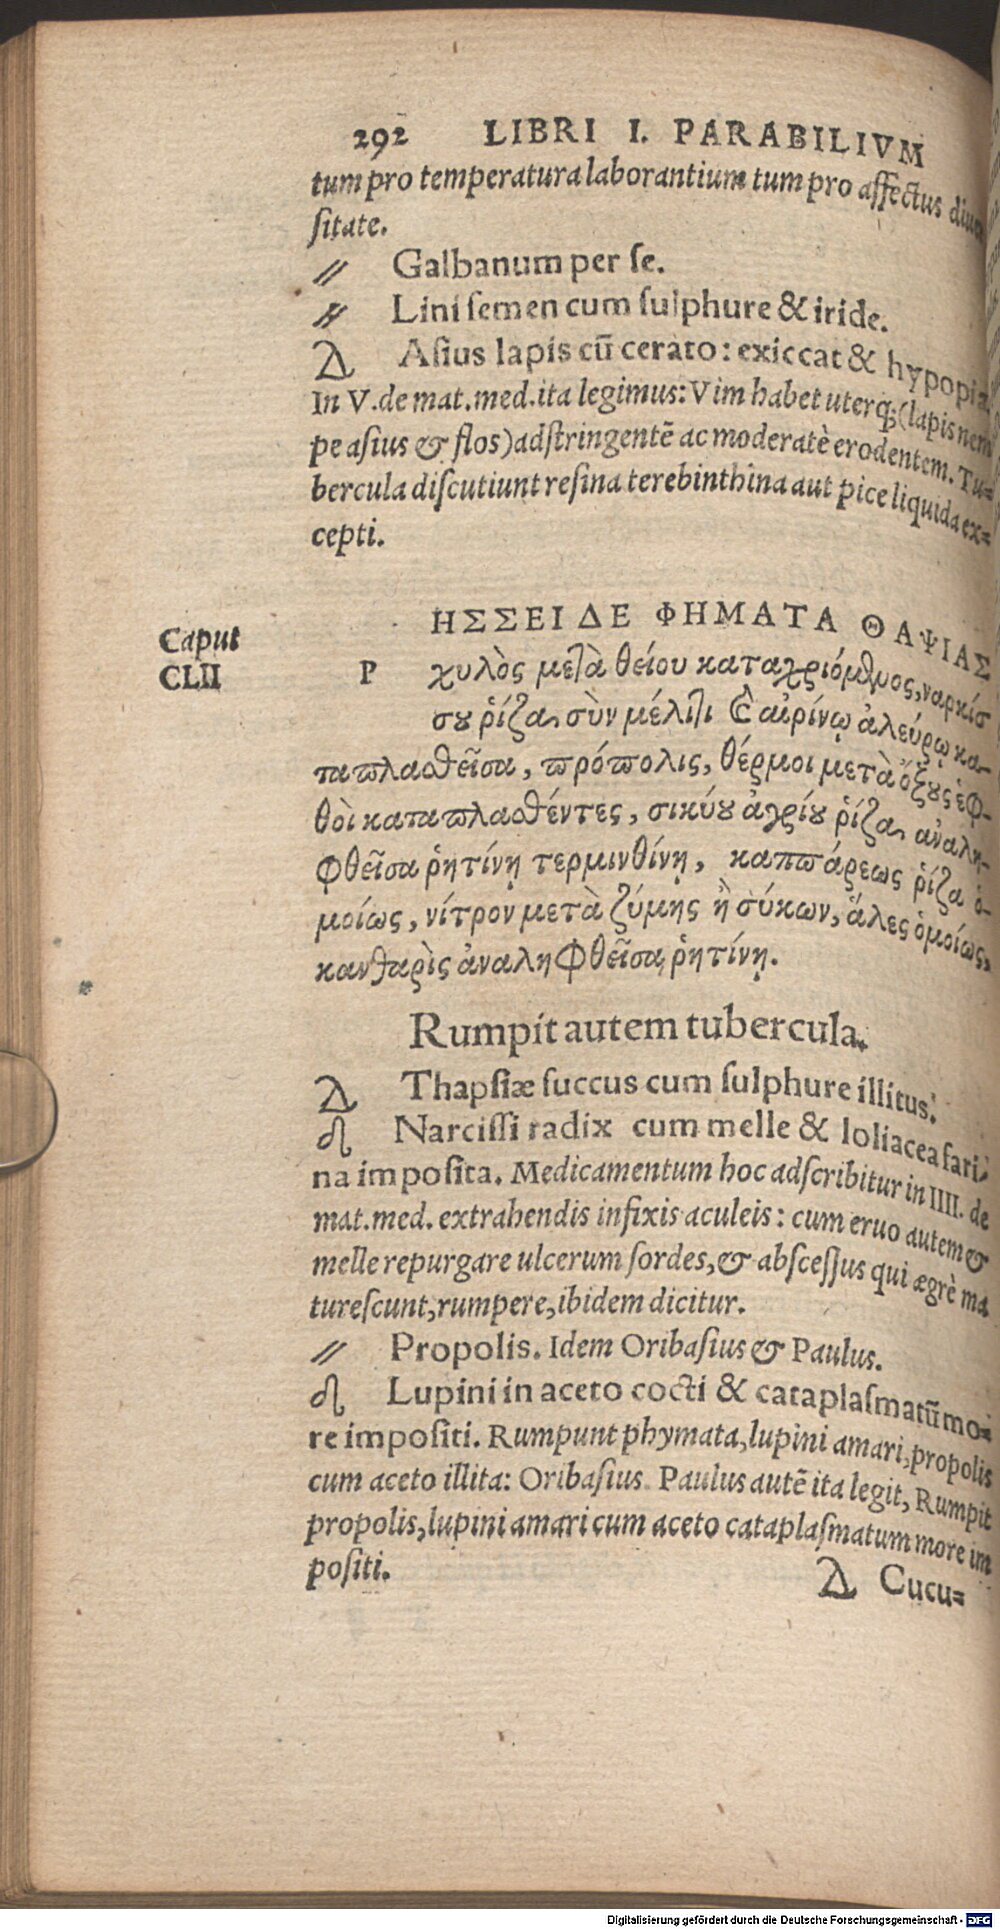 292 LIBRI I. PARABILIVM
tum pro temperatura laborantium tum pro affectus diuer
sitate.
Galbanum per se.
Lini semen cum sulphure & iride.
Asius lapis cũ cerato: exiccat & hypopia.
In V. de mat. med. ita legimus: Vim habet uterq;(lapis nem
pe asius & flos) adstringentẽ ac moderatè erodentem. Tu=
bercula discutiunt resina terebinthina aut pice liquida ex=
cepti.
Caput
CLII
P
ΗΣΣΕΙ ΔΕ ΦΗΜΑΤΑ ΘΑΨΙΑΣ
χυλὸς μετὰ θείου καταχριόμενος, ναρκίσ
σου ῥίζα, σὺν μέλιτι καὶ αἰρίνῳ ἀλεύρῳ κα-
ταπλασθεῖσα, πρόπολις, θέρμοι μετὰ ὄξους ἑφ-
θοὶ καταπλασθέντες, σικύου ἀγρίου ῥίζα, ἀναλη-
φθεῖσα ῥητίνῃ τερμινθίνῃ, καππάρεως ῥίζα ὁ-
μοίως, νίτρον μετὰ ζύμης ἢ σύκων, ἅλες ὁμοίως,
κανθαρὶς ἀναληφθεῖσα, ῥητίνῃ.
Rumpit autem tubercula.
Thapsiæ succus cum sulphure illitus.
Narcissi radix cum melle & loliacea fari
na imposita. Medicamentum hoc adscribitur in IIII. de
mat. med. extrahendis infixis aculeis: cum eruo autem &
melle repurgare ulcerum sordes, & abscessus qui ægrè ma
turescunt, rumpere, ibidem dicitur.
Propolis. Idem Oribasius & Paulus.
Lupini in aceto cocti & cataplasmatũ mo=
re impositi. Rumpunt phymata, lupini amari, propolis
cum aceto illita: Oribasius. Paulus autẽ ita legit, Rumpit
propolis, lupini amari cum aceto cataplasmatum more im
positi.
Cucu=
Digitalisierung gefördert durch die Deutsche Forschungsgemeinschaft - DFG